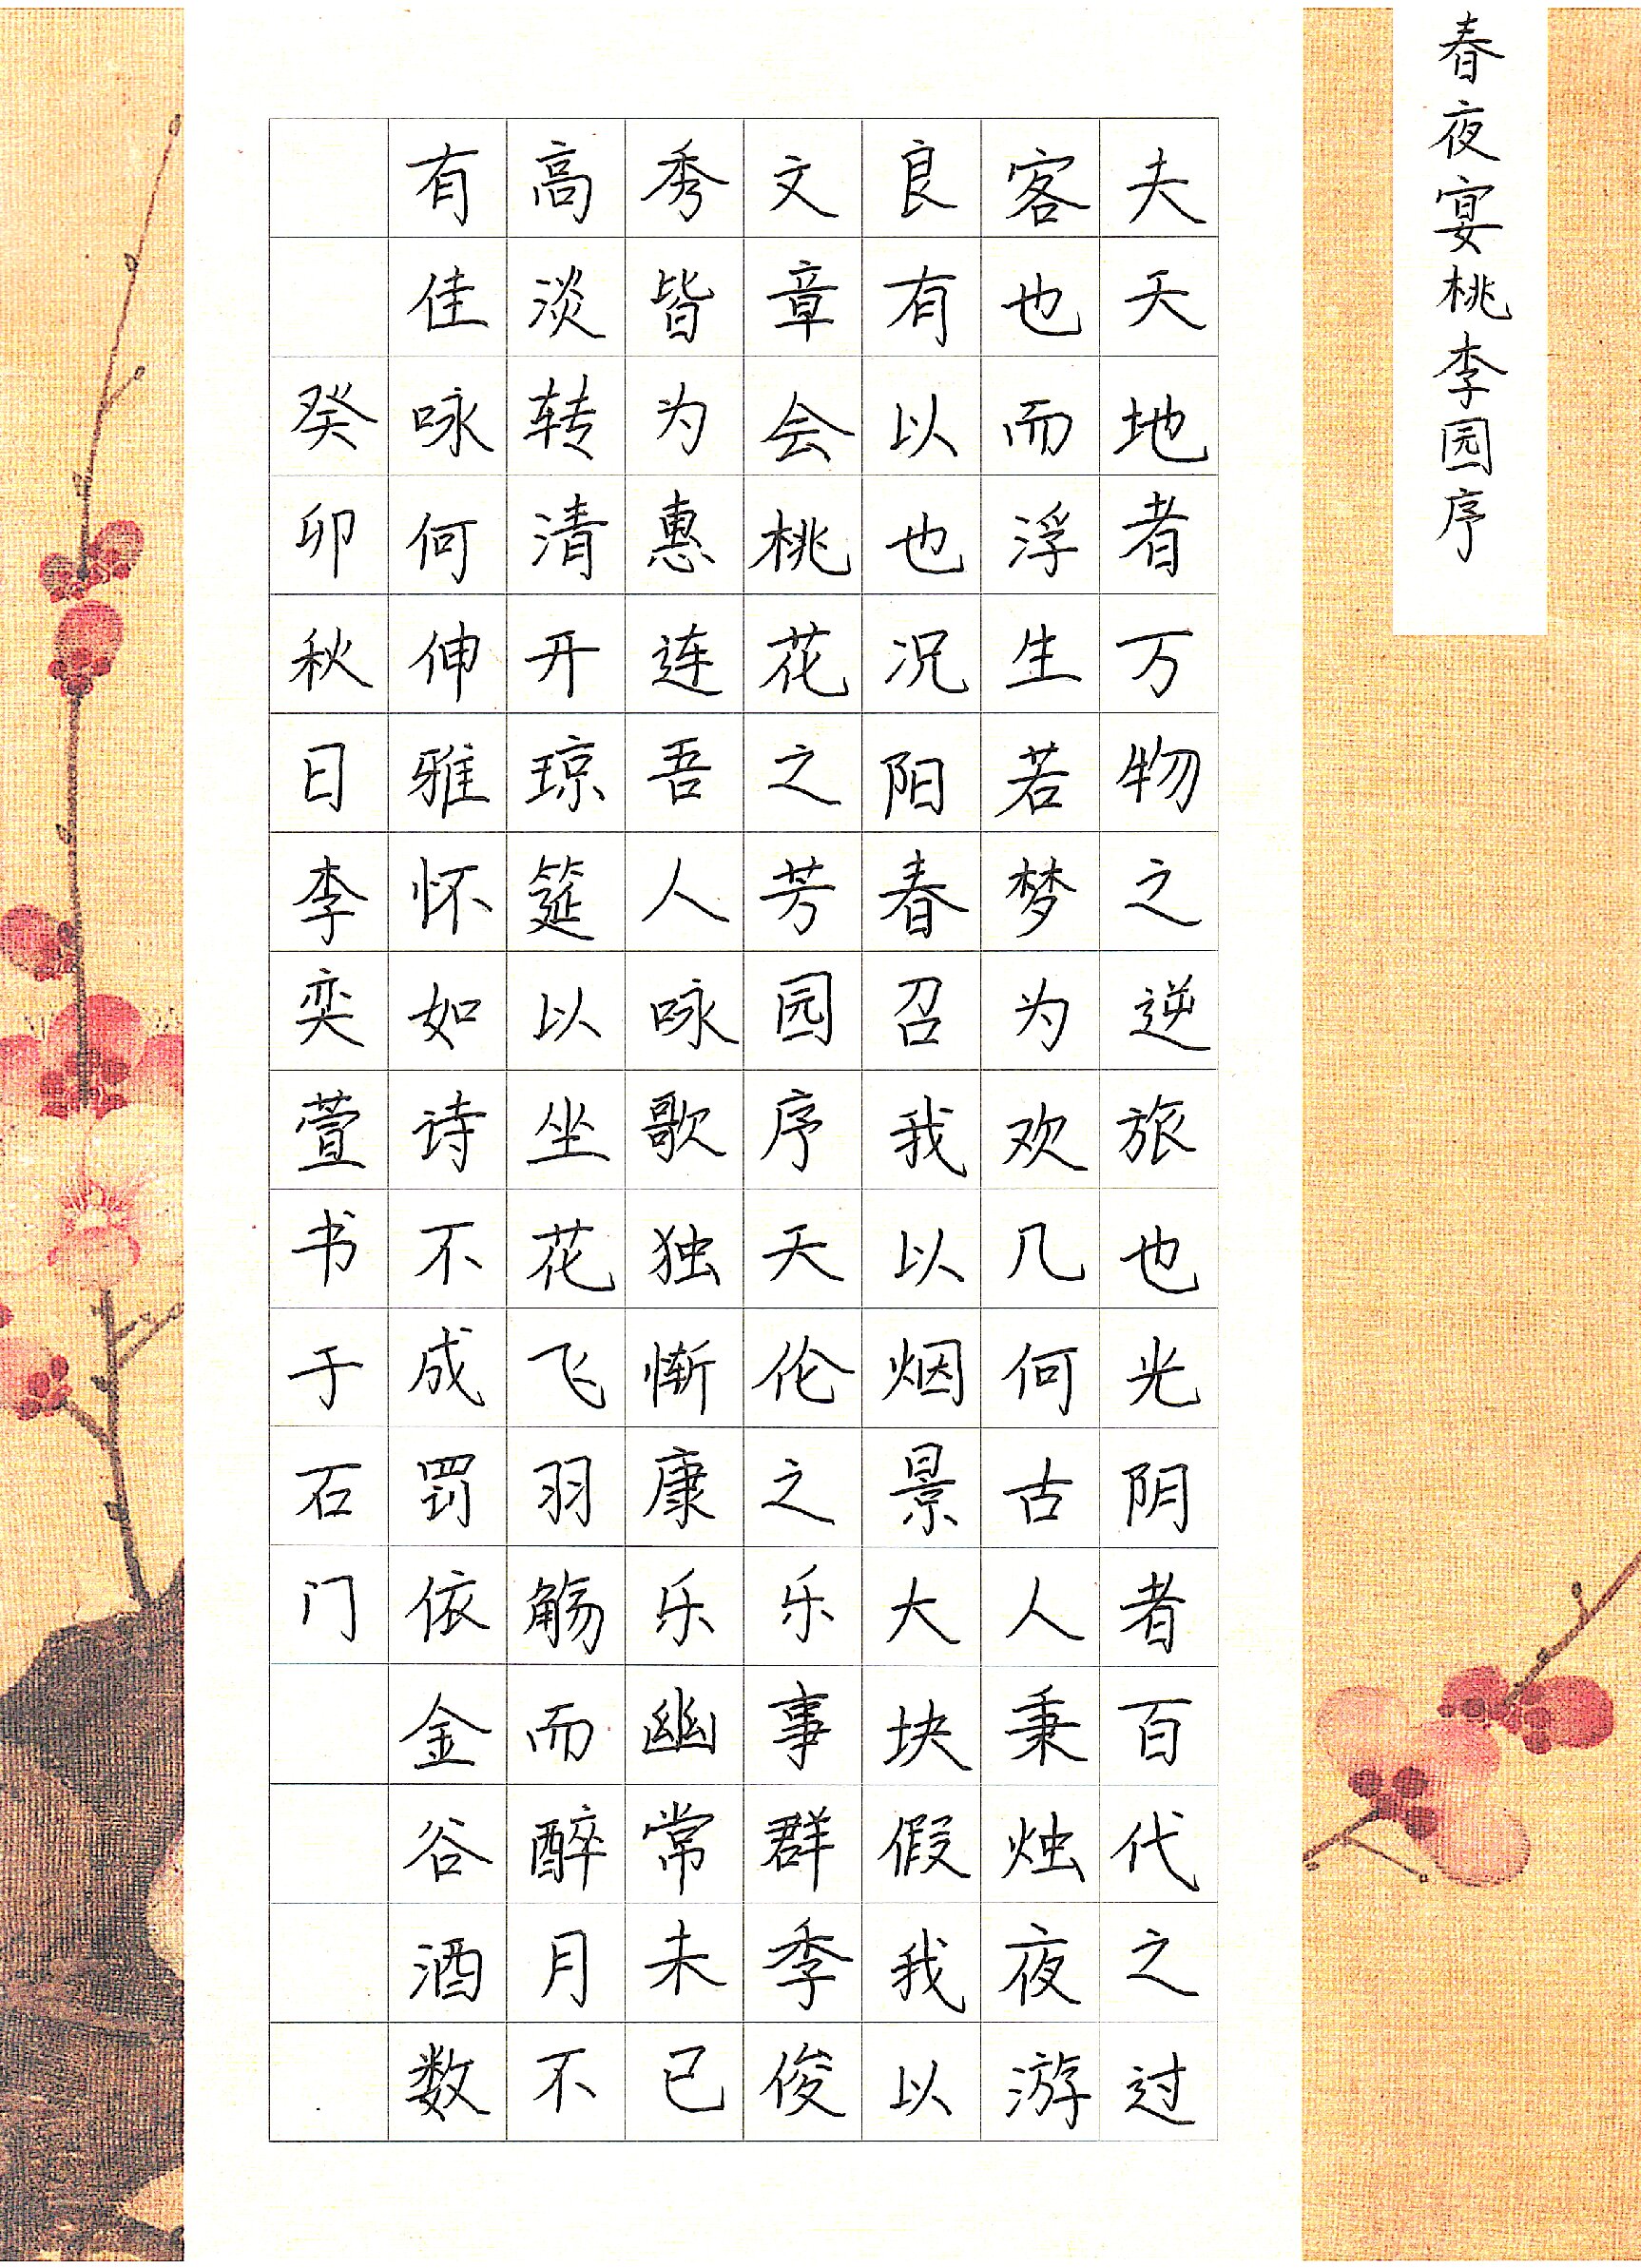 春夜宴桃李园序
夫天地者万物之逆旅也光阴者百代之过
客也而浮生若梦为欢几何古人秉烛夜游
良有以也况阳春召我以烟景大块假我以
文章会桃花之芳园序天伦之乐事群季俊
秀皆为惠连吾人咏歌独惭康乐幽常未已
高淡转清开琼筵以坐花飞羽觞而醉月不
有佳咏何伸雅怀如诗不成罚依金谷酒数
癸卯秋日李奕萱书于石门